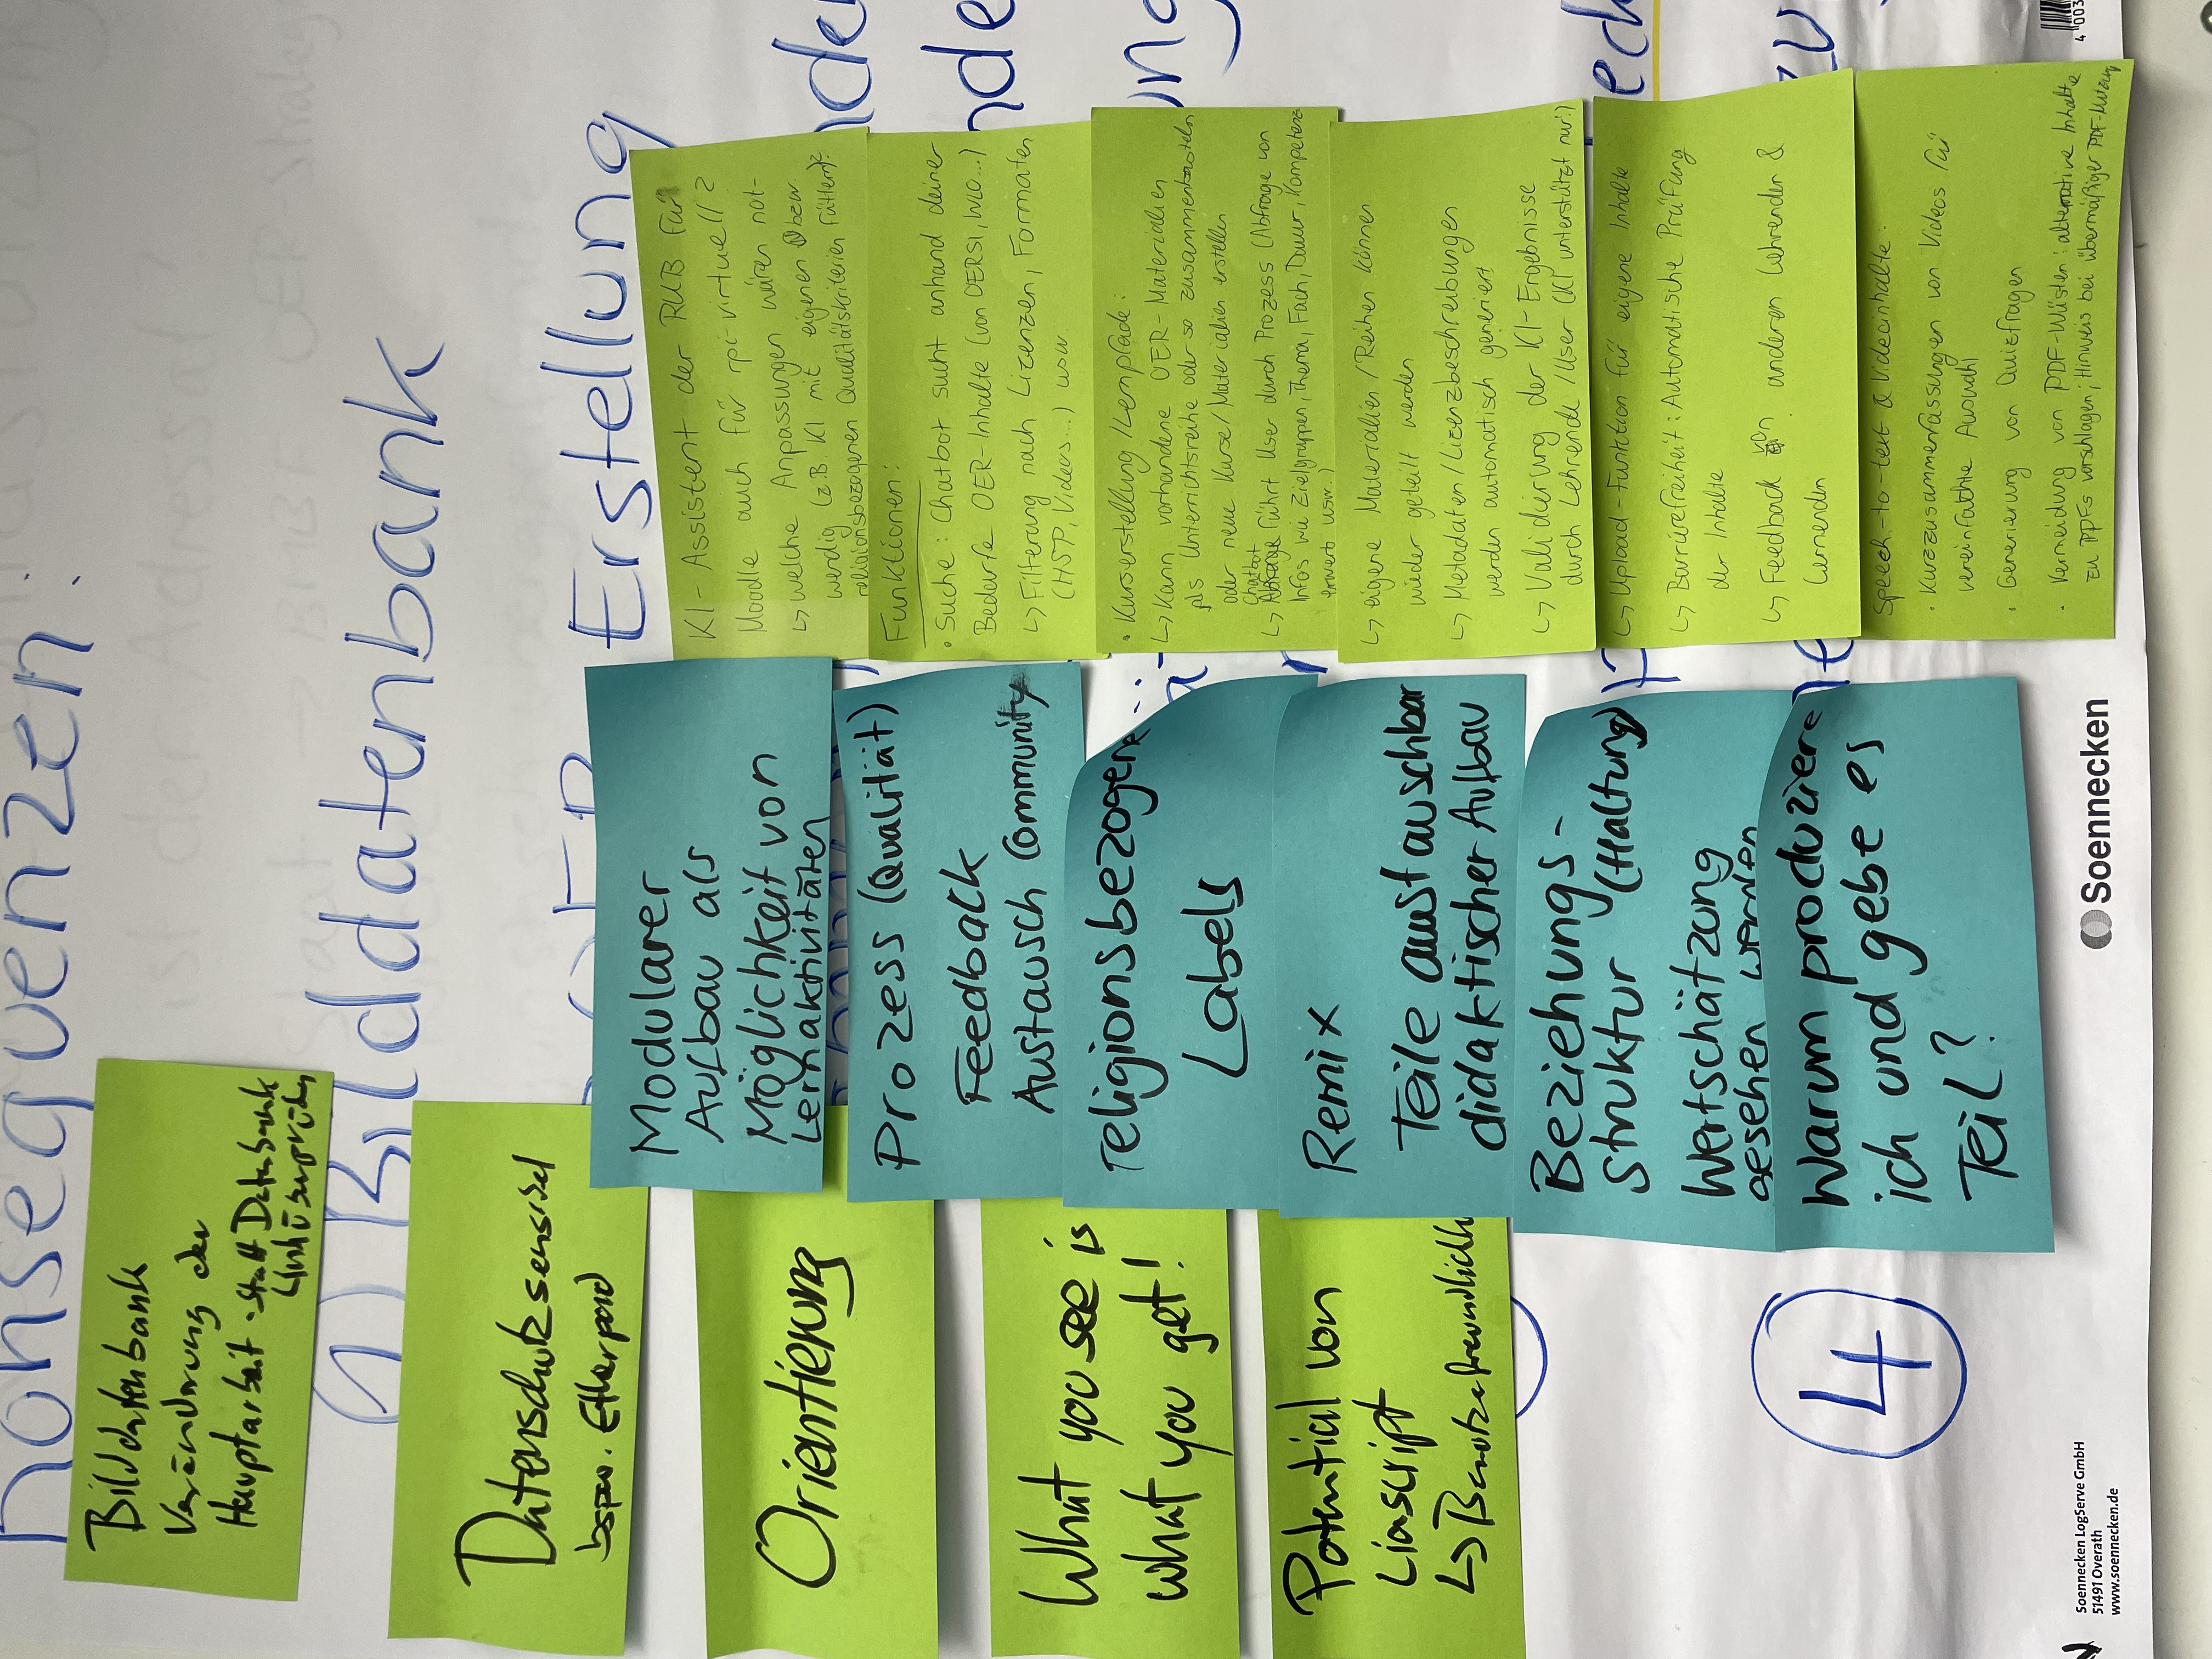 Konsequenzen:
ist der Adressat?
Staat BMBF OER-Strateg
Bilddatenbank
Veränderung der
Hauptarbeit - statt Datenbank
Linküberprüfen
1) Bilddatenbank
OER Erstellung
Datenschutzsensibel
bspw. Etherpad
Orientierung
What you see is
what you get!
Potential von
Liascript
↳ Benutzerfreundlichk
4
Modularer
Aufbau als
Möglichkeit von
Lernaktivitäten
Prozess (Qualität)
Feedback
Austausch Community
religionsbezogene
Labels
Remix
Teile austauschbar
didaktischer Aufbau
Beziehungs-
struktur (Haltung)
Wertschätzung
gesehen werden
Warum produziere
ich und gebe es
Teil?
KI-Assistent der RUB für
Moodle auch für rpi-virtuell?
↳ welche Anpassungen wären not-
wendig (z.B. KI mit eigenen bzw.
religionsbezogenen Qualitätskriterien füttern)?
Funktionen:
• Suche: Chatbot sucht anhand deiner
Bedarfe OER-Inhalte (von OERSI, WLO...)
↳ Filterung nach Lizenzen, Formaten
(H5P, Videos...) usw.
• Kurserstellung/Lernpfade:
↳ Kann vorhandene OER-Materialien
als Unterrichtsreihe oder so zusammenbasteln
oder neue Kurse/Materialien erstellen
Chatbot
↳ führt User durch Prozess (Abfrage von
Infos wie Zielgruppen, Thema, Fach, Dauer, Kompetenz
erwerb usw.)
↳ eigene Materialien/Reihen können
wieder geteilt werden
↳ Metadaten/Lizenzbeschreibungen
werden automatisch generiert
↳ Validierung der KI-Ergebnisse
durch Lehrende/User (KI unterstützt nur!)
↳ Upload-Funktion für eigene Inhalte
↳ Barrierefreiheit: Automatische Prüfung
der Inhalte
↳ Feedback von anderen Lehrenden &
Lernenden
Speech-to-text & Videoinhalte:
• Kurzzusammenfassungen von Videos für
vereinfachte Auswahl
• Generierung von Quizfragen
• Vermeidung von PDF-Wüsten: alternative Inhalte
zu PDFs vorschlagen; Hinweis bei übermäßiger PDF-Nutzung
Soennecken LogServe GmbH
51491 Overath
www.soennecken.de
Soennecken
4 003